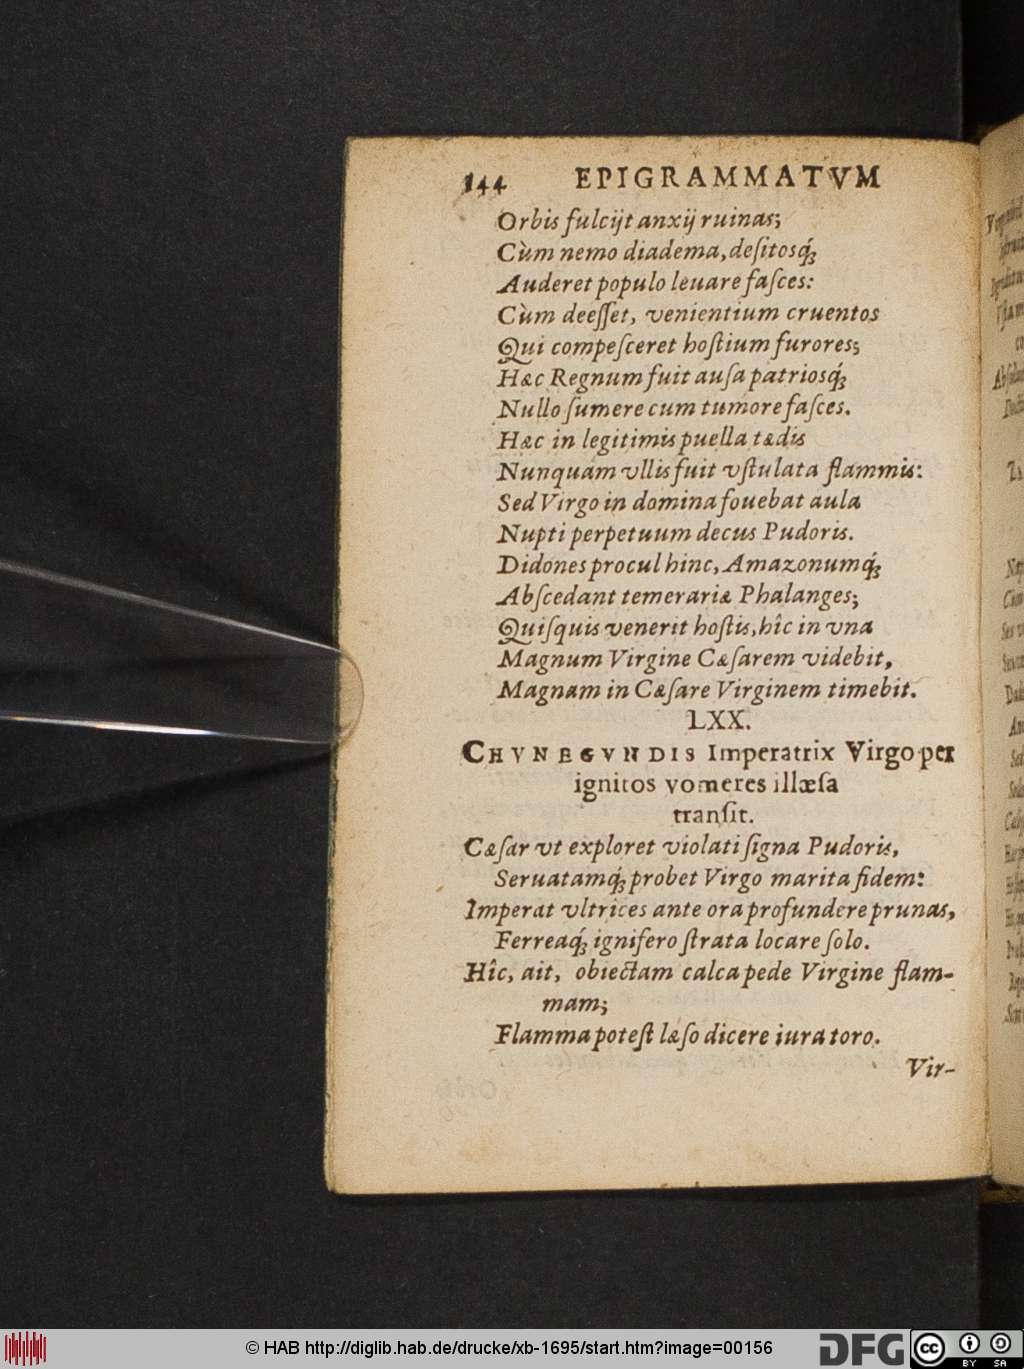 144 EPIGRAMMATVM
Orbis fulcijt anxij ruinas;
Cùm nemo diadema, deſitosq́;
Auderet populo leuare faſces:
Cùm deeſſet, venientium cruentos
Qui compeſceret hoſtium furores;
Hæc Regnum fuit auſa patriosq́;
Nullo ſumere cum tumore faſces.
Hæc in legitimis puella tædis
Nunquam vllis fuit vſtulata flammis:
Sed Virgo in domina fouebat aula
Nupti perpetuum decus Pudoris.
Didones procul hinc, Amazonumq́;
Abſcedant temerariæ Phalanges;
Quiſquis venerit hoſtis, hîc in vna
Magnum Virgine Cæſarem videbit,
Magnam in Cæſare Virginem timebit.
LXX.
CHVNEGVNDIS Imperatrix Virgo per
ignitos vomeres illæſa
tranſit.
Cæſar vt exploret violati ſigna Pudoris,
Seruatamq́; probet Virgo marita fidem:
Imperat vltrices ante ora profundere prunas,
Ferreaq́; ignifero ſtrata locare ſolo.
Hîc, ait, obiectam calca pede Virgine flam-
mam;
Flamma poteſt læſo dicere iura toro.
Vir-
© HAB http://diglib.hab.de/drucke/xb-1695/start.htm?image=00156
DFG
cc
BY SA